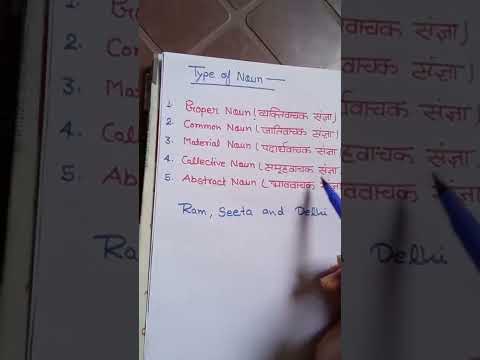 Type of Noun —
1. Proper Noun (व्यक्तिवाचक संज्ञा)
2. Common Noun (जातिवाचक संज्ञा)
3. Material Noun (पदार्थवाचक संज्ञा
4. Collective Noun (समूहवाचक संज्ञा
5. Abstract Noun (भाववाचक संज्ञा
Ram, Seeta and Delhi